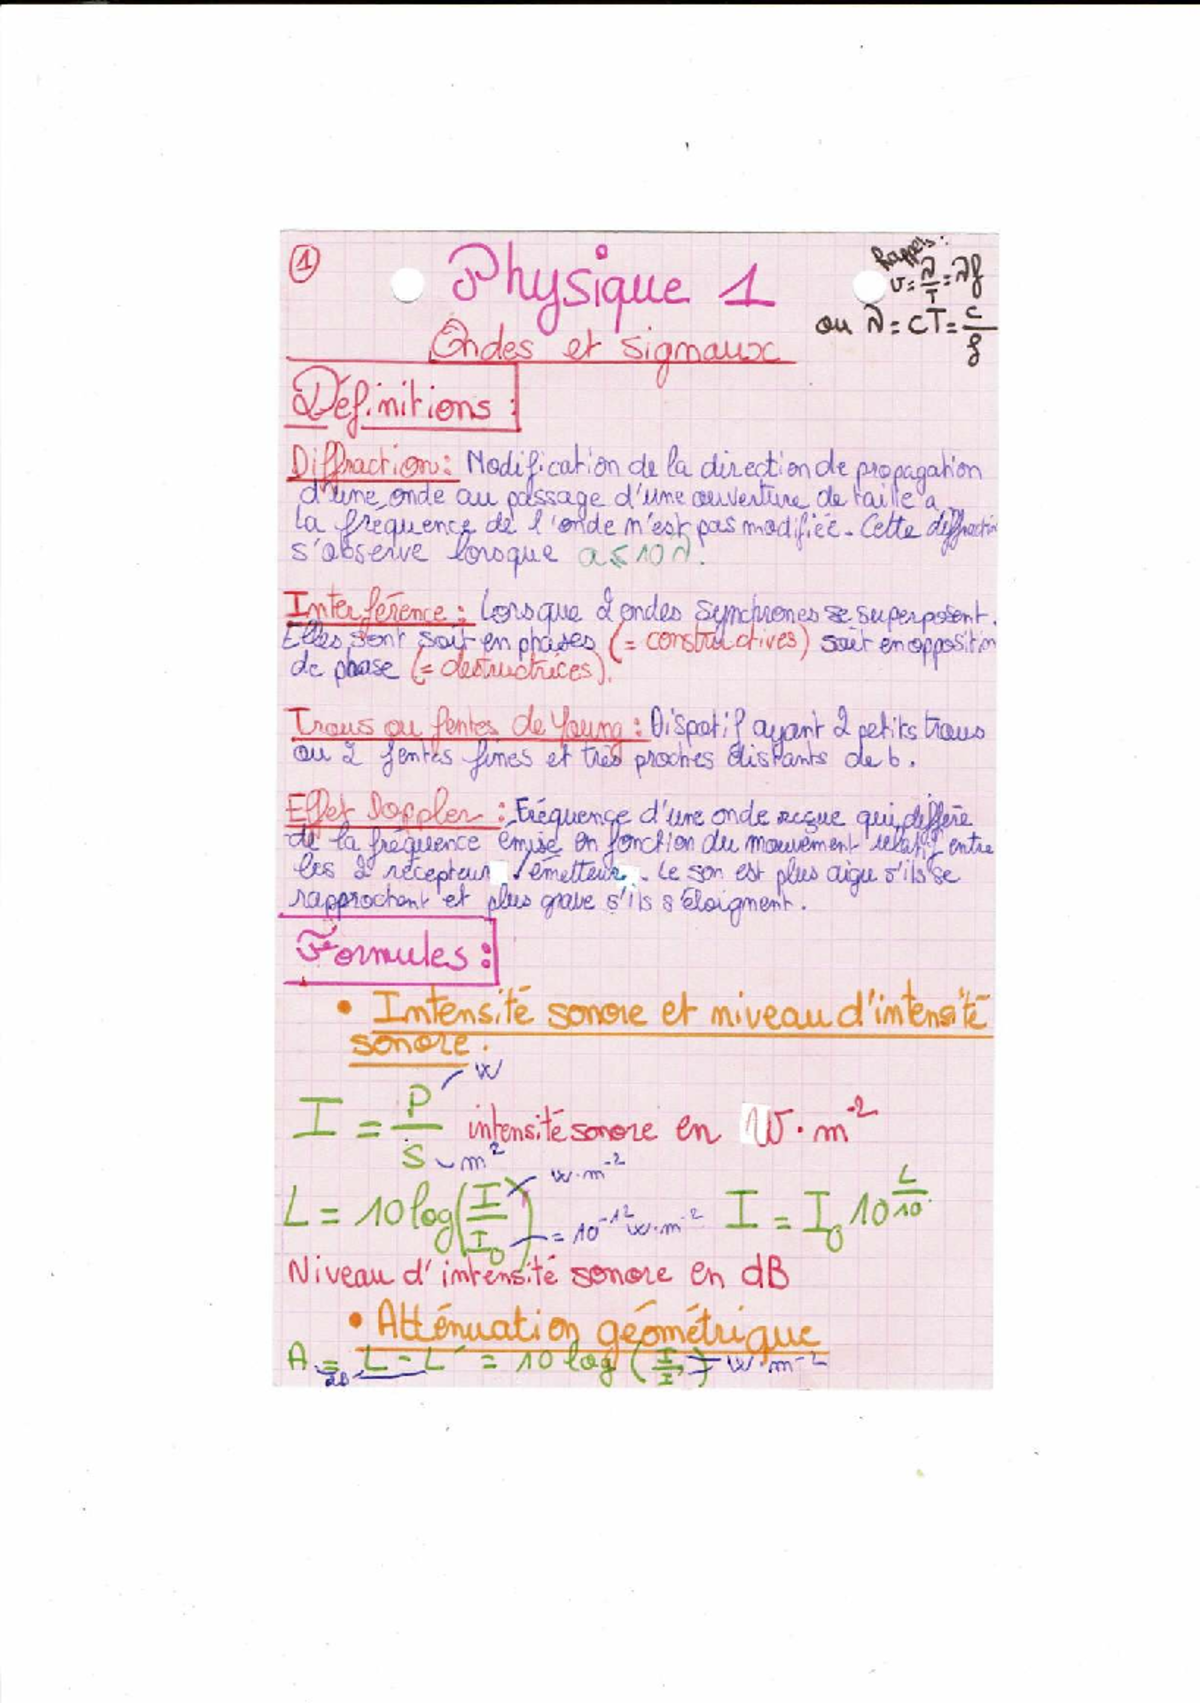 1
Physique 1
Rappels :
v = λ/T = λf
ou λ = cT = c/f
Ondes et signaux
Définitions :
Diffraction : Modification de la direction de propagation
d'une onde au passage d'une ouverture de taille a
la fréquence de l'onde n'est pas modifiée. Cette diffraction
s'observe lorsque a ≤ 10 λ.
Interférence : Lorsque 2 ondes synchrones se superposent.
Elles sont soit en phases (= constructives) soit en opposition
de phase (= destructrices).
Trous ou fentes de Young : Dispotif ayant 2 petits trous
ou 2 fentes fines et très proches distants de b.
Effet Doppler : Fréquence d'une onde reçue qui diffère
de la fréquence émise en fonction du mouvement relatif entre
les 2 récepteur / émetteur. Le son est plus aigu s'ils se
rapprochent et plus grave s'ils s'éloignent.
Formules :
• Intensité sonore et niveau d'intensité
sonore :
I = P/S intensité sonore en W·m⁻²
W
m²
L = 10 log(I/I₀) I = I₀ 10^(L/10)
W·m⁻²
= 10⁻¹² W·m⁻²
Niveau d'intensité sonore en dB
• Atténuation géométrique
A = L - L' = 10 log (I/I') W·m⁻²
dB